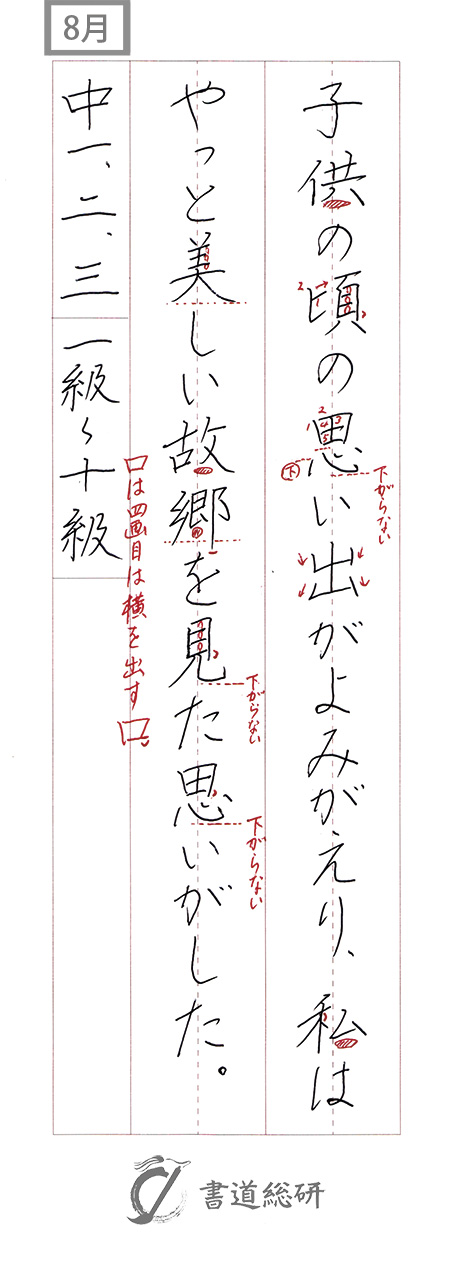 8月
子供の頃の思い出がよみがえり、私は
やっと美しい故郷を見た思いがした。
中一、二、三 一級〜十級
下がらない
下
下がらない
下がらない
口は四画目は横を出す口。
書道総研